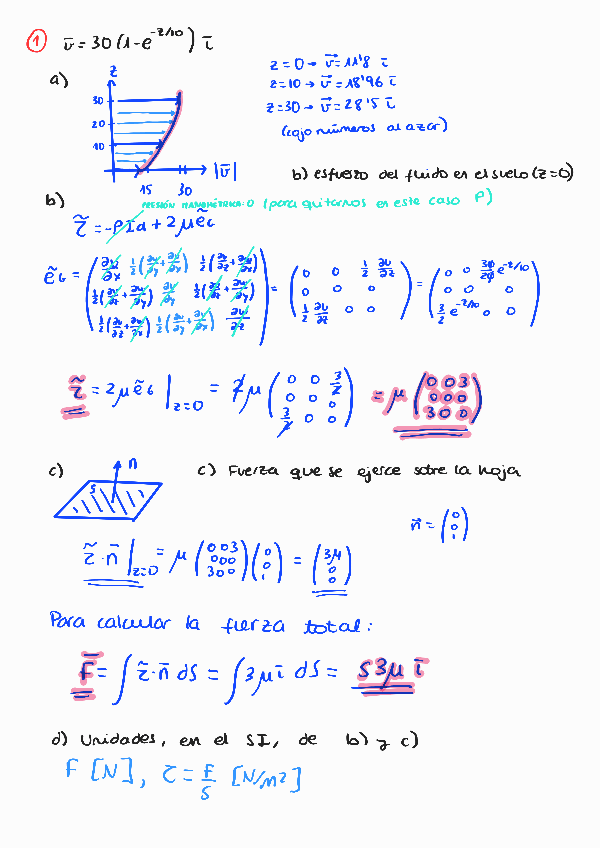 1 v̄ = 30 (1 - e^{-z/10}) ī
a)
z
30
20
10
15 30 |v̄|
z = 0 → v⃗ = 11'8 ī
z = 10 → v⃗ = 18'96 ī
z = 30 → v⃗ = 28'5 ī
(cojo números al azar)
b) esfuerzo del fluido en el suelo (z=0)
b) PRESIÓN MANOMÉTRICA = 0 (para quitarnos en este caso P)
τ̃ = -P Id + 2μ ẽG
ẽG = ( ∂u/∂x 1/2(∂u/∂y + ∂v/∂x) 1/2(∂u/∂z + ∂w/∂x) ; 1/2(∂u/∂y + ∂v/∂x) ∂v/∂y ; ∂w/∂z ) = ( 0 0 1/2 ∂u/∂z ; 0 0 0 ; 1/2 ∂u/∂z 0 0 ) = ( 0 0 30/20 e^{-z/10} ; 0 0 0 ; 3/2 e^{-z/10} 0 0 )
τ̃ = 2μ ẽG |z=0 = 2μ ( 0 0 3/2 ; 0 0 0 ; 3/2 0 0 ) = μ ( 0 0 3 ; 0 0 0 ; 3 0 0 )
c) S n
c) Fuerza que se ejerce sobre la hoja
n⃗ = ( 0 ; 0 ; 1 )
τ̃ · n̄ |z=0 = μ ( 0 0 3 ; 0 0 0 ; 3 0 0 ) ( 0 ; 0 ; 1 ) = ( 3μ ; 0 ; 0 )
Para calcular la fuerza total:
F̄ = ∫ τ̃ · n̄ dS = ∫ 3μ ī dS = S3μ ī
d) Unidades, en el SI, de b) y c)
F [N], τ = F/S [N/m²]